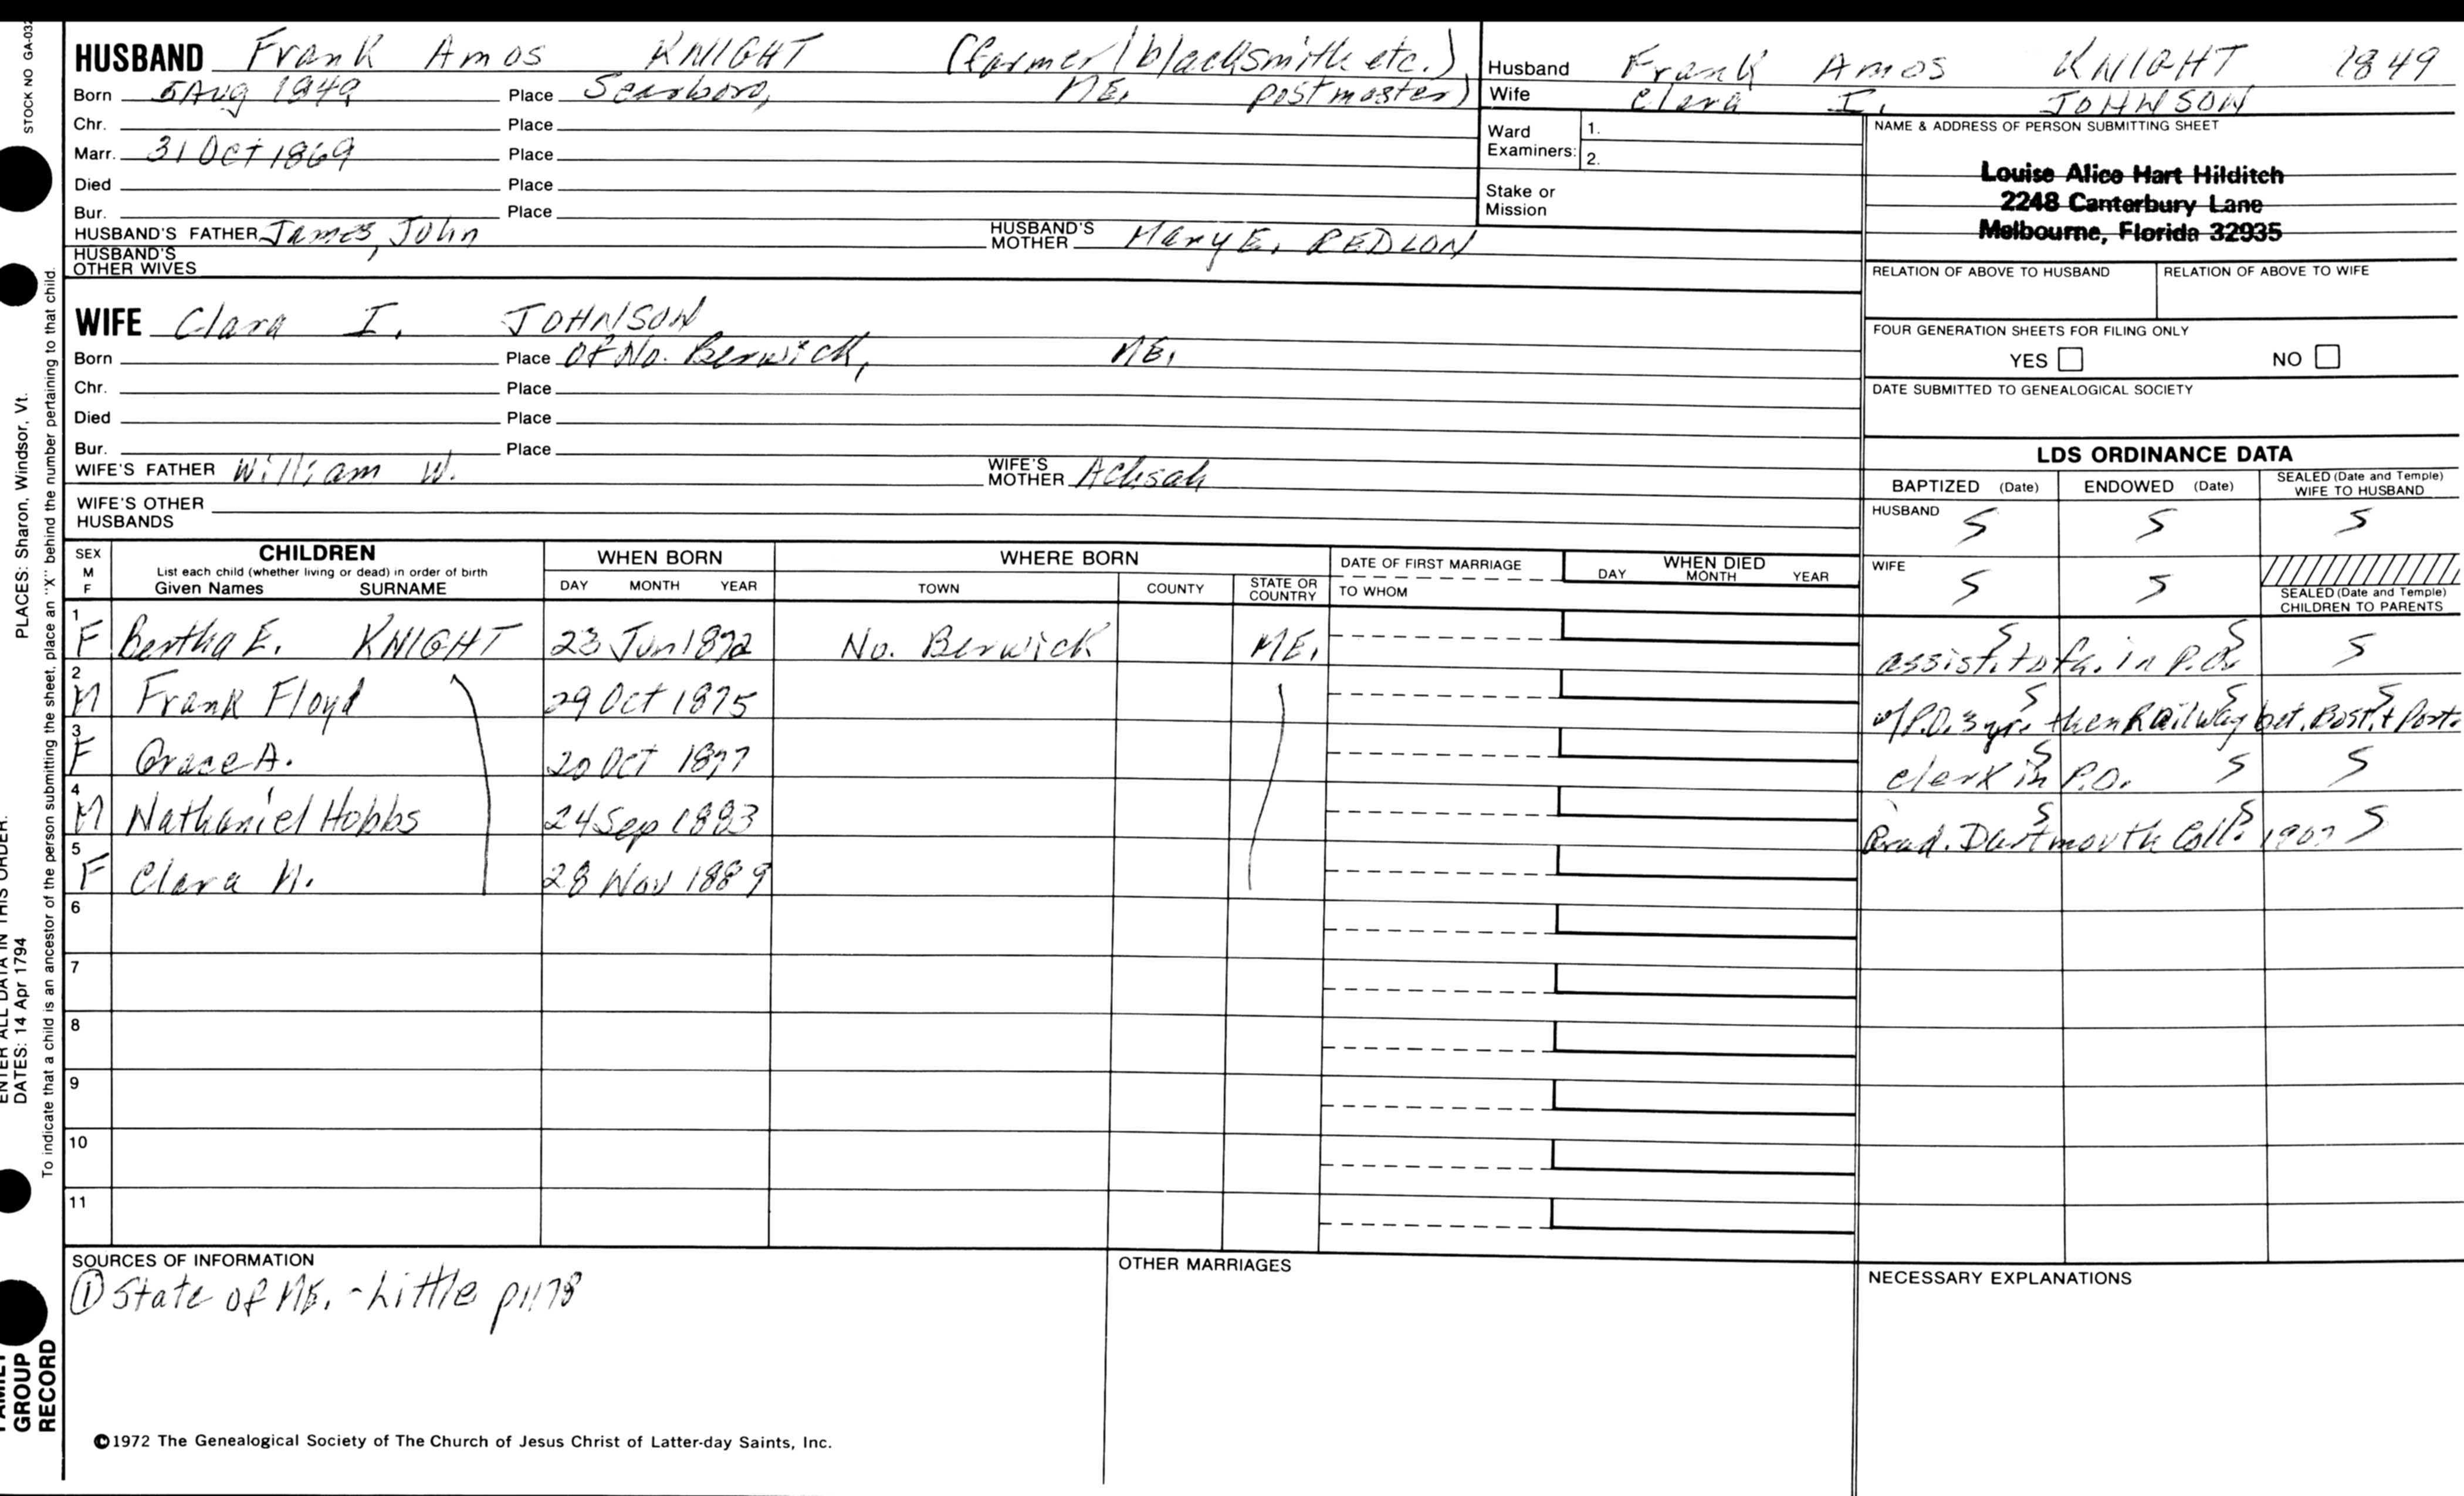 STOCK NO GA-032
HUSBAND Frank Amos KNIGHT (farmer/blacksmith etc.)
Born 5 Aug 1849 Place Scarboro, ME. postmaster)
Chr. Place
Marr. 31 Oct 1869 Place
Died Place
Bur. Place
HUSBAND'S FATHER James, John HUSBAND'S MOTHER Mary E. REDLON
HUSBAND'S OTHER WIVES
WIFE Clara I. JOHNSON
Born Place of No. Berwick, ME.
Chr. Place
Died Place
Bur. Place
WIFE'S FATHER William W. WIFE'S MOTHER Achsah
WIFE'S OTHER HUSBANDS
Husband Frank Amos KNIGHT 1849
Wife Clara I. JOHNSON
Ward Examiners: 1.
2.
Stake or Mission
NAME & ADDRESS OF PERSON SUBMITTING SHEET
Louise Alice Hart Hilditch
2248 Canterbury Lane
Melbourne, Florida 32935
RELATION OF ABOVE TO HUSBAND RELATION OF ABOVE TO WIFE
FOUR GENERATION SHEETS FOR FILING ONLY
YES NO
DATE SUBMITTED TO GENEALOGICAL SOCIETY
LDS ORDINANCE DATA
BAPTIZED (Date) ENDOWED (Date) SEALED (Date and Temple) WIFE TO HUSBAND
HUSBAND S S S
WIFE S S
SEALED (Date and Temple) CHILDREN TO PARENTS
SEX M F CHILDREN WHEN BORN WHERE BORN DATE OF FIRST MARRIAGE WHEN DIED
List each child (whether living or dead) in order of birth
Given Names SURNAME DAY MONTH YEAR TOWN COUNTY STATE OR COUNTRY TO WHOM DAY MONTH YEAR
1 F Bertha E. KNIGHT 23 Jun 1872 No. Berwick ME. S S S
assist. to fa. in P.O.
2 M Frank Floyd 29 Oct 1875 S S S
w/P.O. 3 yrs. then Railway bet. Bost. + Port.
3 F Grace A. 20 Oct 1877 S S S
clerk in P.O.
4 M Nathaniel Hobbs 24 Sep 1883 S S S
Grad. Dartmouth Coll. 1907
5 F Clara M. 28 Nov 1889
6
7
8
9
10
11
SOURCES OF INFORMATION
① State of ME. - Little p1178
OTHER MARRIAGES
NECESSARY EXPLANATIONS
©1972 The Genealogical Society of The Church of Jesus Christ of Latter-day Saints, Inc.
PLACES: Sharon, Windsor, Vt.
ENTER ALL DATA IN THIS ORDER:
DATES: 14 Apr 1794
To indicate that a child is an ancestor of the person submitting the sheet, place an "X" behind the number pertaining to that child.
FAMILY GROUP RECORD